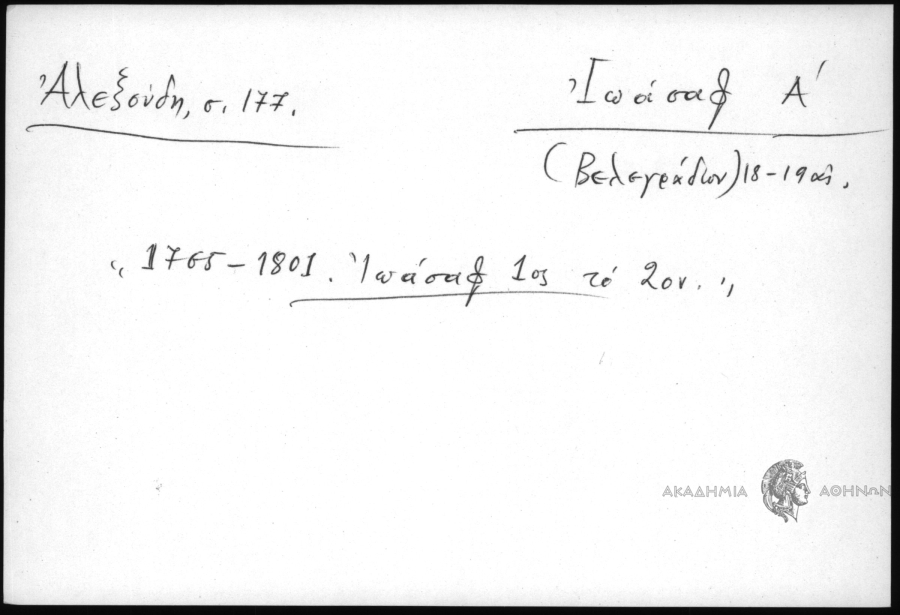 Ἀλεξούδη, σ. 177.
Ἰωάσαφ Α΄
(Βελεγράδων) 18-19 αἰ.
"1765-1801. Ἰωάσαφ 1ος τό 2ον."
ΑΚΑΔΗΜΙΑ ΑΘΗΝΩΝ